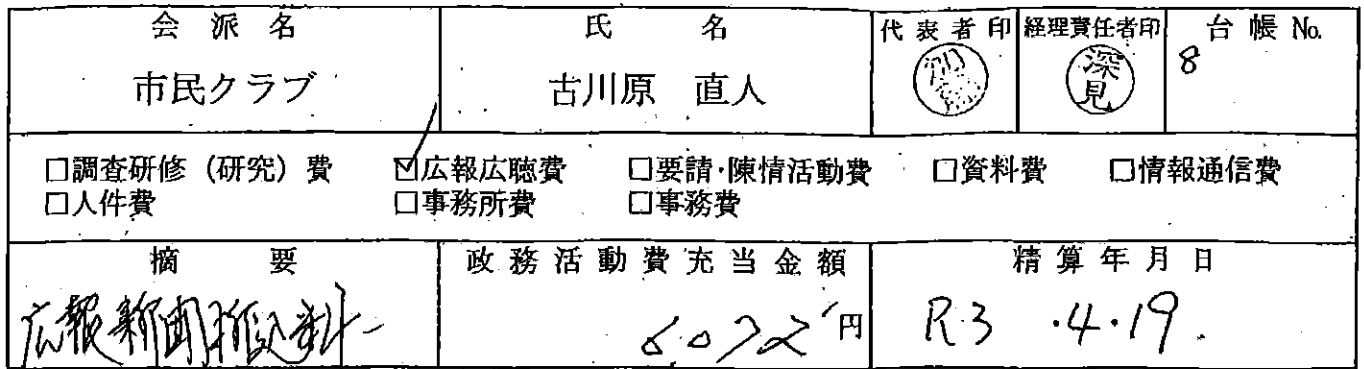 会派名 氏名 代表者印 経理責任者印 台帳No.
市民クラブ 古川原 直人 深見 8
□調査研修（研究）費 ☑広報広聴費 □要請・陳情活動費 □資料費 □情報通信費
□人件費 □事務所費 □事務費
摘要 政務活動費充当金額 精算年月日
広報新聞折込料 6072円 R.3.4.19.